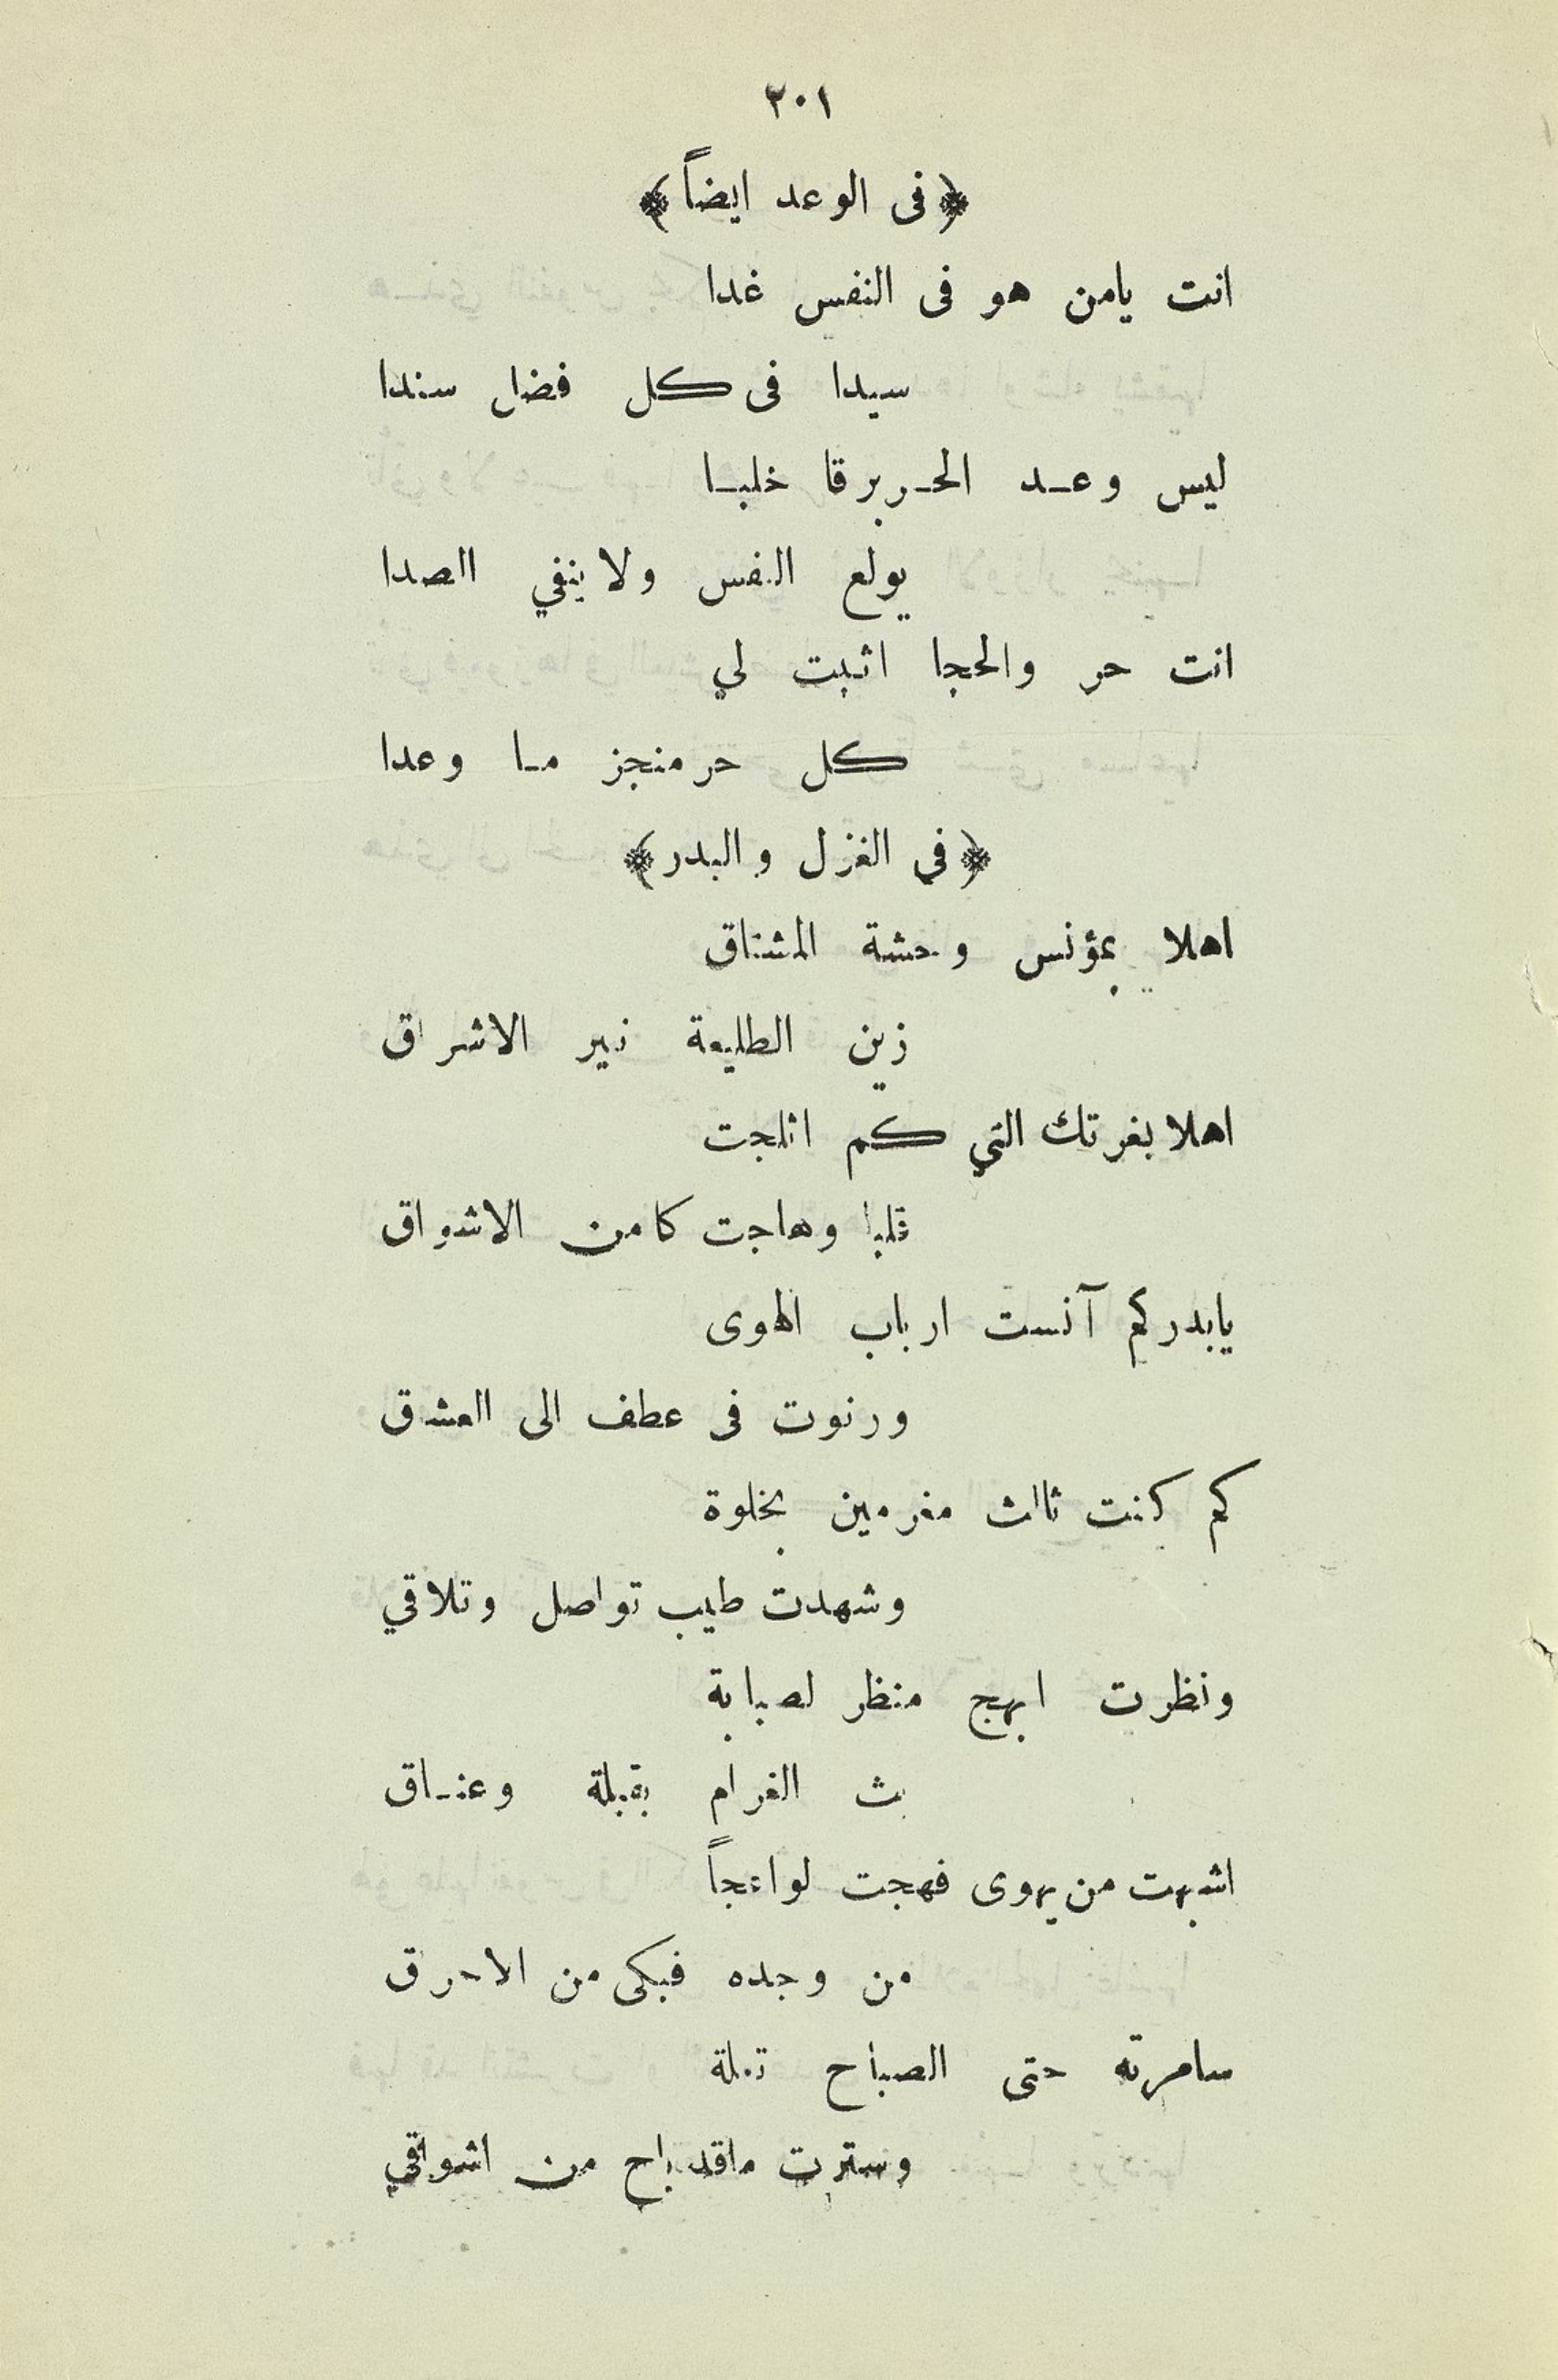 ٢٠١
﴿في الوعد ايضاً﴾
انت يامن هو فى النفس غدا
سيدا فى كل فضل سندا
ليس وعد الحر برقا خلبا
يولع النفس ولا ينفي الصدا
انت حر والحجا اثبت لي
كل حر منجز ما وعدا
﴿في الغزل والبدر﴾
اهلا بمؤنس وحشة المشتاق
زين الطليعة نير الاشراق
اهلا بغرتك التي كم اثلجت
قلبا وهاجت كامن الاشواق
يابدر كم آنست ارباب الهوى
ورنوت فى عطف الى العشق
كم كنت ثالث مغرمين بخلوة
وشهدت طيب تواصل وتلاقي
ونظرت ابهج منظر لصبابة
بث الغرام بقبلة وعناق
اشبهت من يهوى فهجت لواعجاً
من وجده فبكى من الاحراق
سامرته حتى الصباح تملة
وسترت ماقد باح من اشواقي